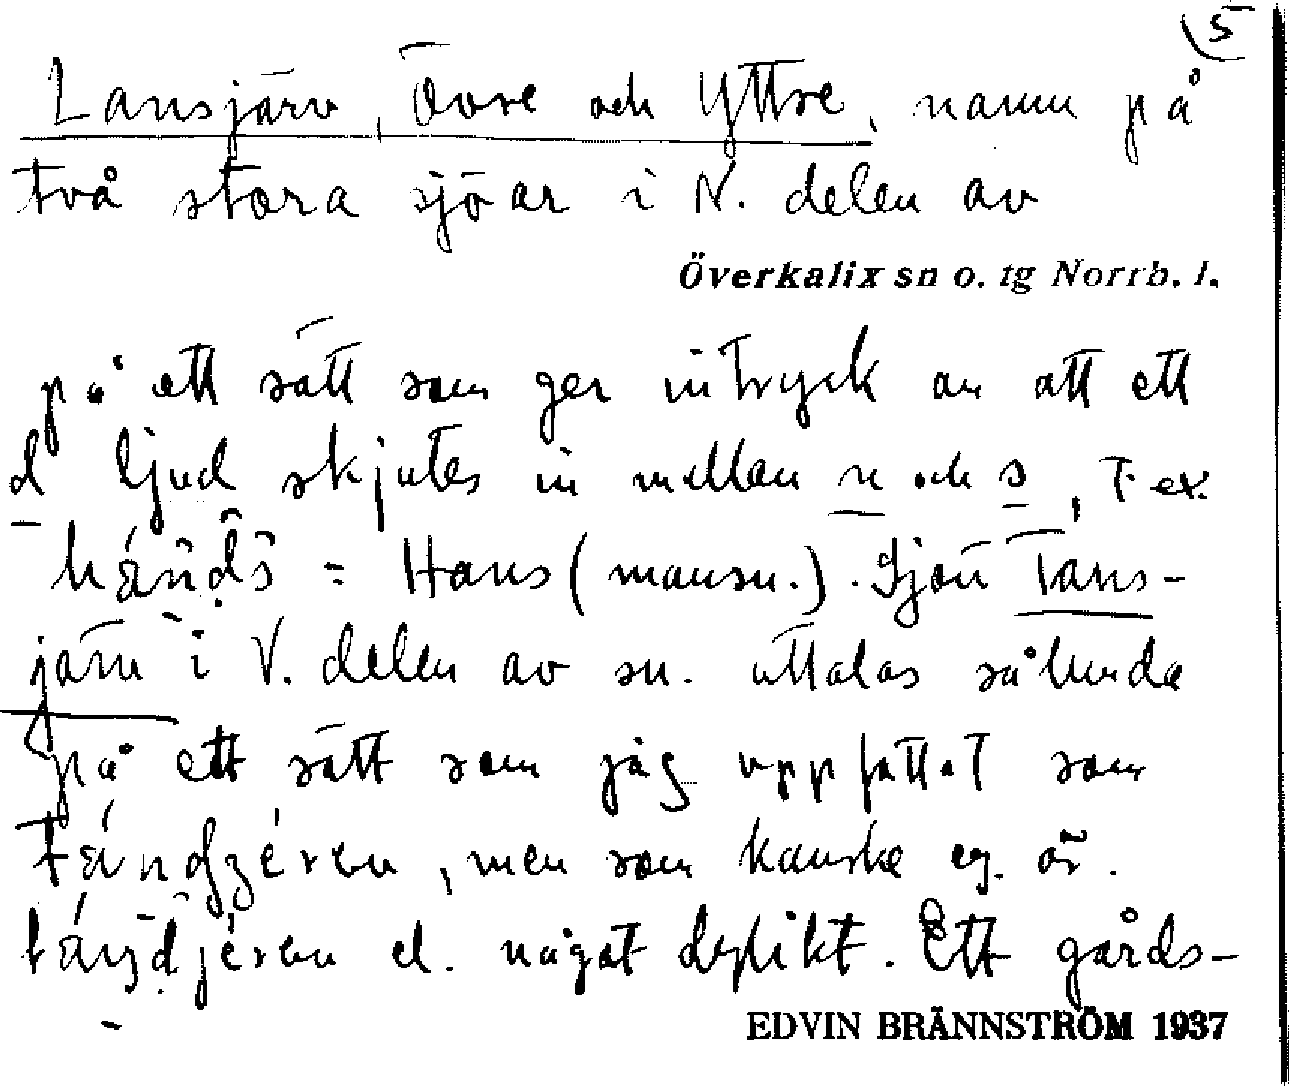 5
Lansjärv, Övre och Yttre, namn på
två stora sjöar i N. delen av
Överkalix sn o. tg Norrb. l.
på ett sätt som ger intryck av att ett
d ljud skjutes in mellan n och s, t. ex.
= Hans (mansn.). Sjön Tans-
järv i V. delen av sn. uttalas sålunda
på ett sätt som jag uppfattat som
, men som kanske eg. är
el. något dylikt. Ett gårds-
EDVIN BRÄNNSTRÖM 1937